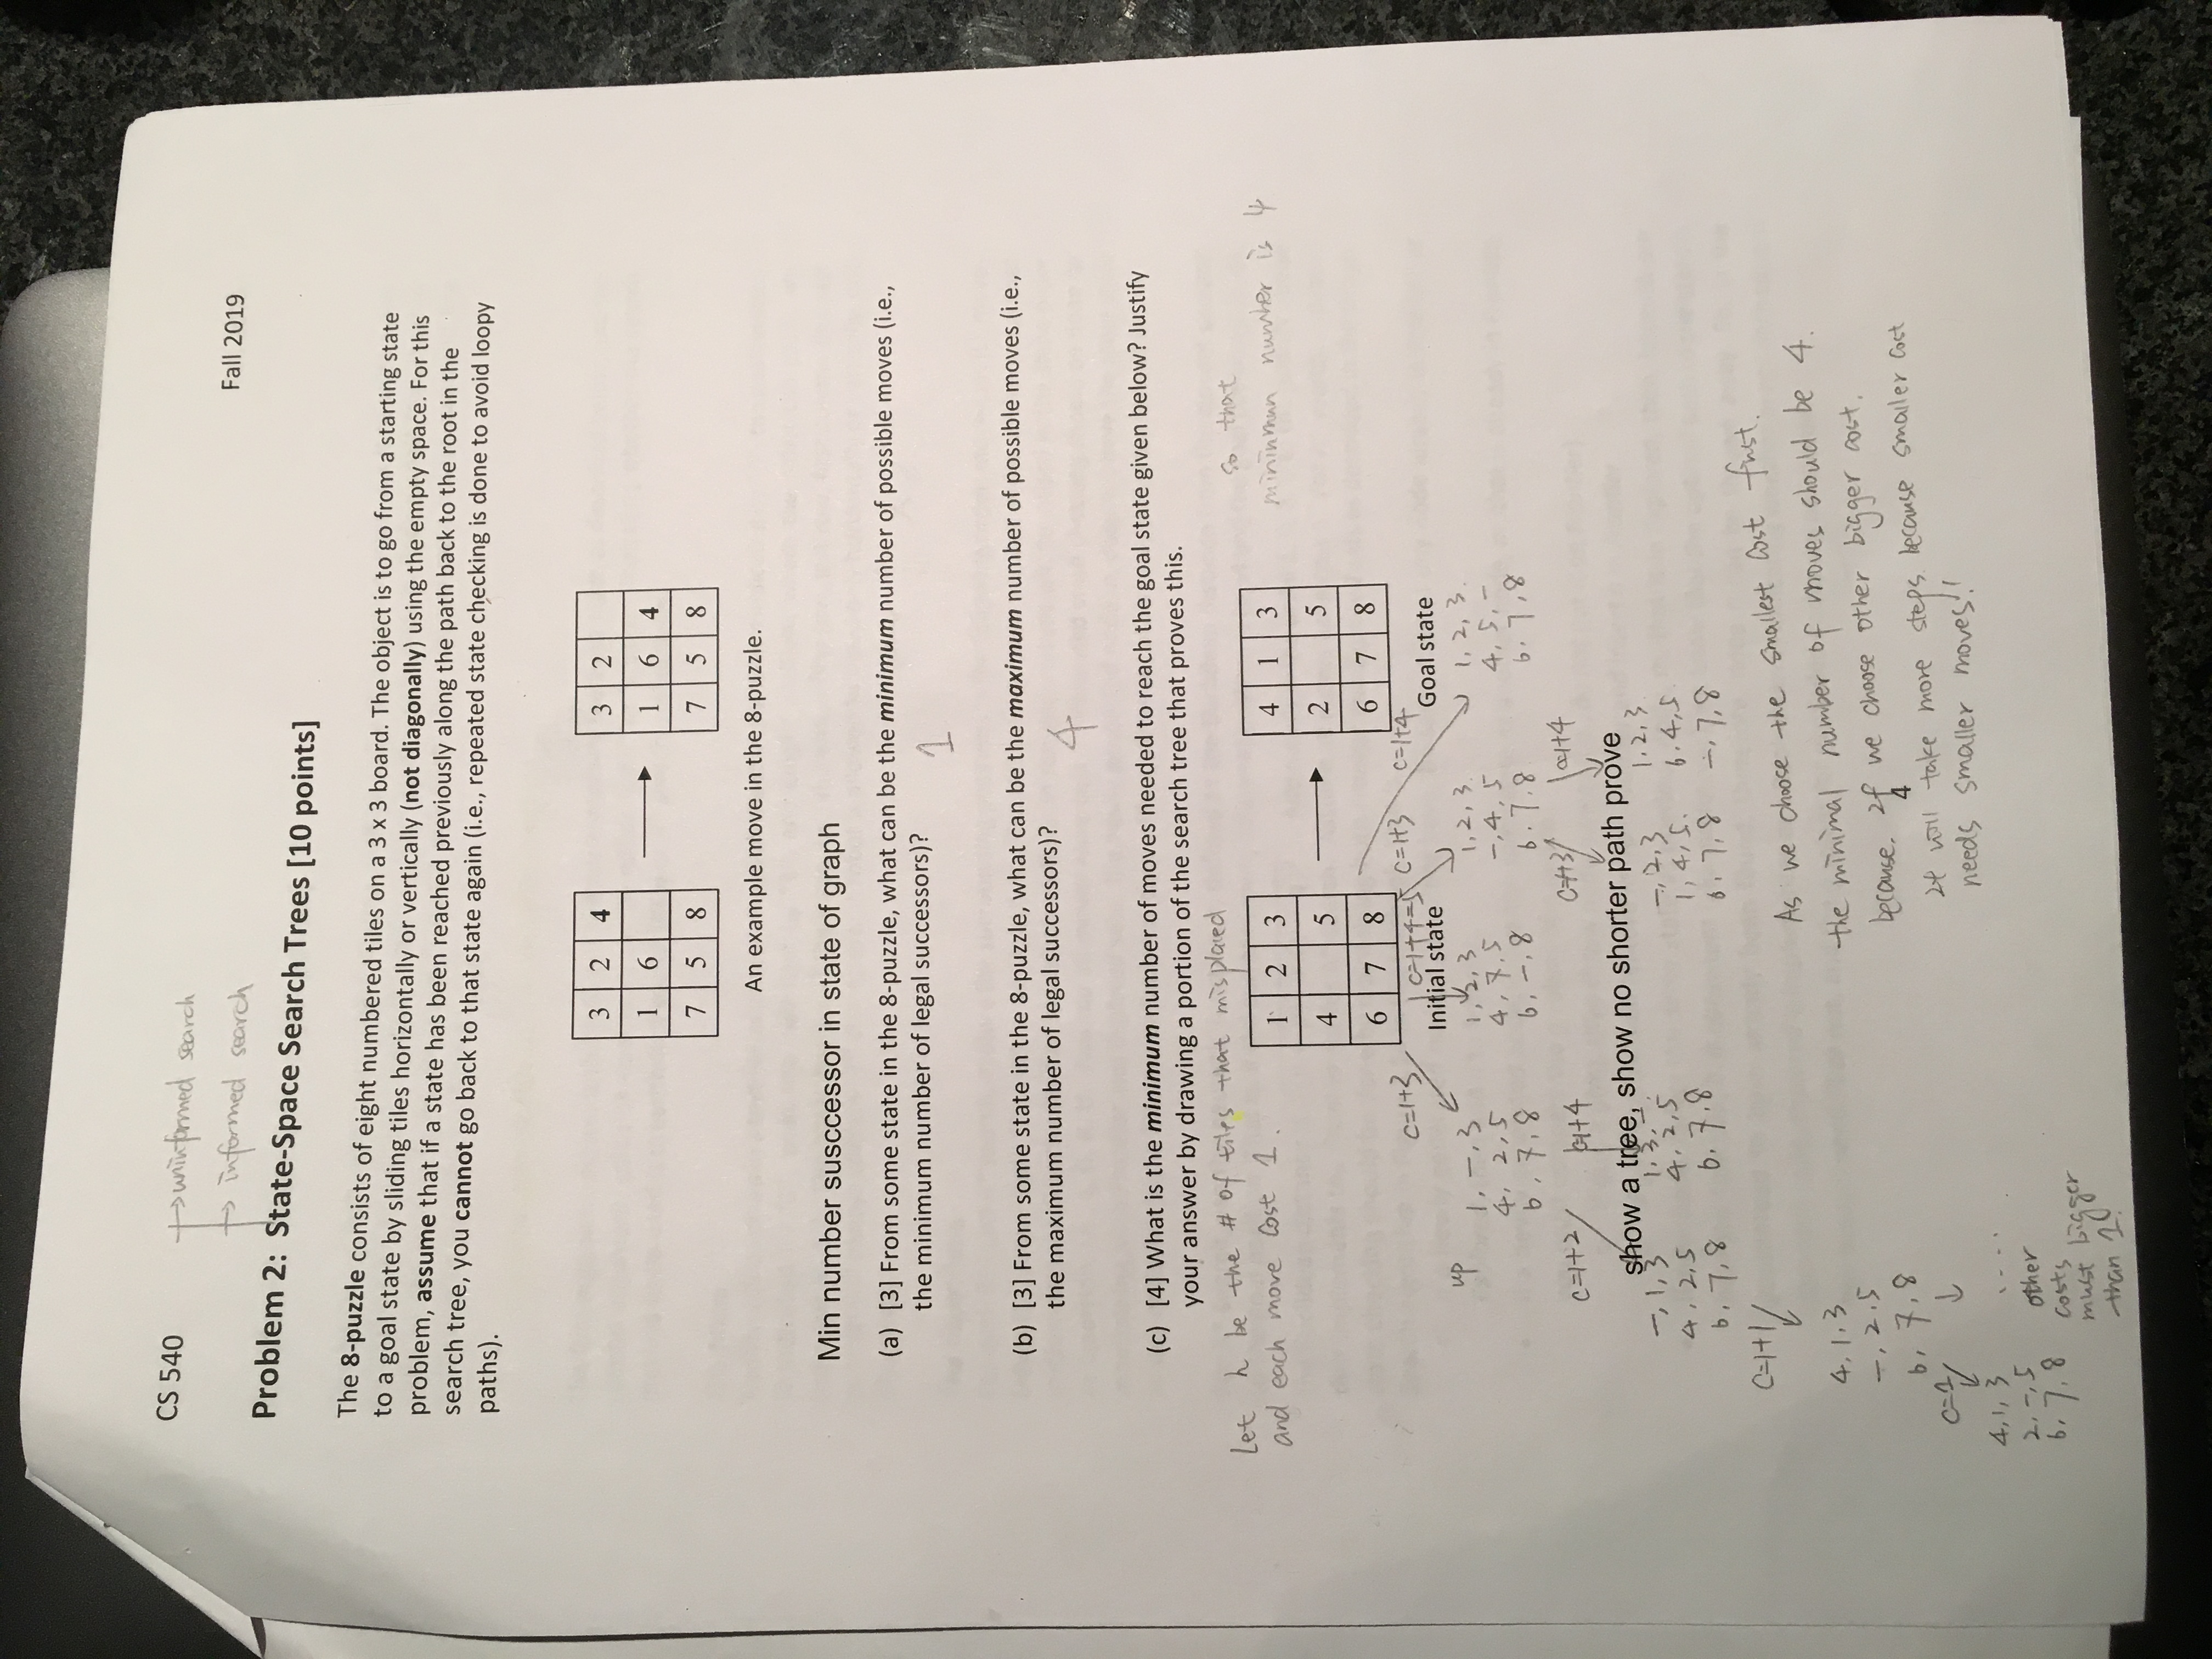 CS 540
→ uninformed search
→ informed search
Fall 2019
Problem 2: State-Space Search Trees [10 points]
The 8-puzzle consists of eight numbered tiles on a 3 x 3 board. The object is to go from a starting state
to a goal state by sliding tiles horizontally or vertically (not diagonally) using the empty space. For this
problem, assume that if a state has been reached previously along the path back to the root in the
search tree, you cannot go back to that state again (i.e., repeated state checking is done to avoid loopy
paths).
3 2 4
1 6
7 5 8
3 2
1 6 4
7 5 8
An example move in the 8-puzzle.
Min number susccessor in state of graph
(a) [3] From some state in the 8-puzzle, what can be the minimum number of possible moves (i.e.,
the minimum number of legal successors)?
1
(b) [3] From some state in the 8-puzzle, what can be the maximum number of possible moves (i.e.,
the maximum number of legal successors)?
4
(c) [4] What is the minimum number of moves needed to reach the goal state given below? Justify
your answer by drawing a portion of the search tree that proves this.
Let h be the # of tiles that misplaced
and each move cost 1.
so that
mininmun number is 4
1 2 3
4 5
6 7 8
4 1 3
2 5
6 7 8
c=1+3
c=1+4=5
c=1+3
c=1+4
Initial state
Goal state
up
1, -, 3
4, 2, 5
6, 7, 8
1, 2, 3
4, 7, 5
6, -, 8
1, 2, 3.
-, 4, 5
6. 7. 8
1, 2, 3.
4, 5, -
6. 7, 8
c=1+2
c=1+4
c=1+3
c=1+4
show a tree, show no shorter path prove
-, 1, 3
4, 2, 5
6, 7, 8
1, 3, -.
4, 2, 5
6, 7.8
-, 2, 3
1, 4, 5.
6, 7, 8
1.2, 3
6. 4, 5.
-, 7, 8
c=1+1
4, 1, 3
-, 2.5
6, 7, 8
c=1
4, 1, 3
2, -, 5
6, 7, 8
.....
other
costs
must bigger
than 1.
As we choose the smallest cost first.
the minimal number of moves should be 4.
because. If we choose other bigger cost.
4
It will take more steps because smaller cost
needs smaller moves!!